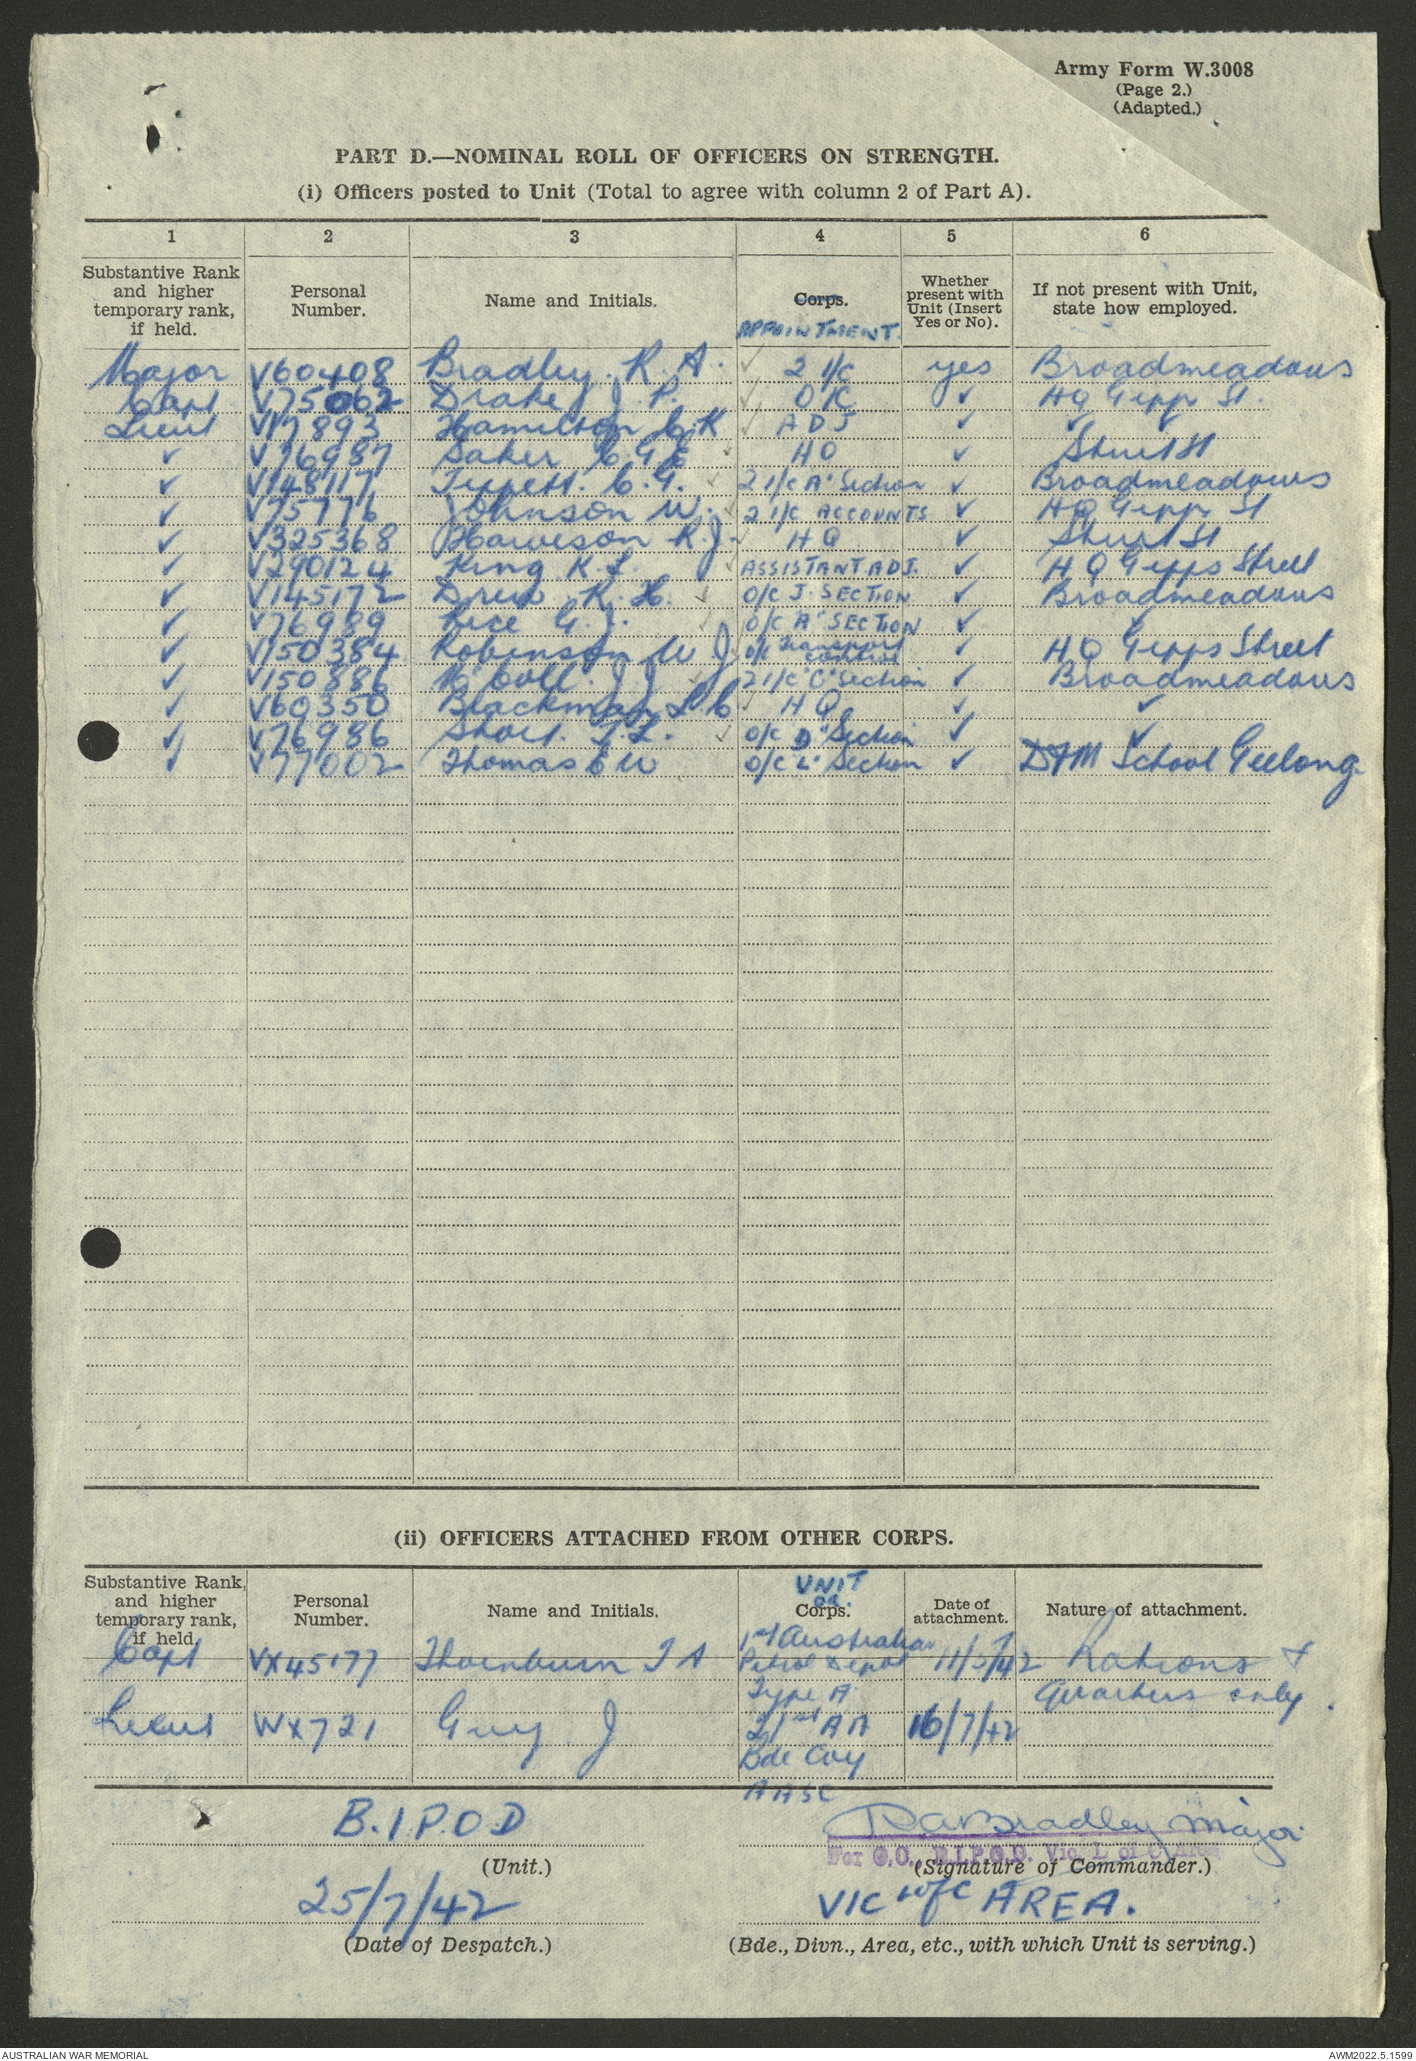 Army Form W.3008
(Page 2.)
(Adapted.)
PART D.—NOMINAL ROLL OF OFFICERS ON STRENGTH.
(i) Officers posted to Unit (Total to agree with column 2 of Part A).
1 2 3 4 5 6
Substantive Rank and higher temporary rank, if held. Personal Number. Name and Initials. Corps. APPOINTMENT. Whether present with Unit (Insert Yes or No). If not present with Unit, state how employed.
Major V60408 Bradley. R. A. ✓ 2 I/C yes Broadmeadows
Capt V75062 Drake J. P. ✓ O/C ✓ HQ Gipp St.
Lieut V17893 Hamilton C. K ✓ ADJ ✓ ✓ ✓
✓ V76987 Saker C. G E ✓ HQ ✓ Sturt St
✓ V148117 Tippett. C. G. ✓ 2 I/C "A" Section ✓ Broadmeadows
✓ V75776 Johnson W. ✓ 2 I/C ACCOUNTS ✓ HQ Gipp St
✓ V325368 Harveson R. J. ✓ HQ ✓ Sturt St
✓ V290124 King K. L. ✓ ASSISTANT ADJ. ✓ HQ Gipps Street
✓ V145172 Drew. K. H. ✓ O/C J. SECTION ✓ Broadmeadows
✓ V76989 Rice G. J. ✓ O/C "A" SECTION ✓ ✓
✓ V150384 Robinson W J ✓ O/C Transport Control ✓ HQ Gipps Street
✓ V150886 McColl. J. J ✓ 2 I/C "C" Section ✓ Broadmeadows
✓ V60350 Blackman L C ✓ HQ ✓ ✓
✓ V76986 Short. T. L. ✓ O/C "D" Section ✓ ✓
✓ V77002 Thomas C W O/C L. Section ✓ D&M School Geelong
(ii) OFFICERS ATTACHED FROM OTHER CORPS.
Substantive Rank, and higher temporary rank, if held. Personal Number. Name and Initials. UNIT OR. Corps. Date of attachment. Nature of attachment.
Capt VX45177 Thornburn T A 1st Australian Petrol Depot Type A 11/5/42 Rations & Quarters only.
Lieut WX721 Guy J 21st AA Bde Coy AASC 16/7/42
B.I.P.O.D
(Unit.)
RA Bradley Major
For O.C., B.I.P.O.D. Vic. L of C Area
(Signature of Commander.)
25/7/42
(Date of Despatch.)
VIC L of C AREA.
(Bde., Divn., Area, etc., with which Unit is serving.)
AUSTRALIAN WAR MEMORIAL
AWM2022.5.1599